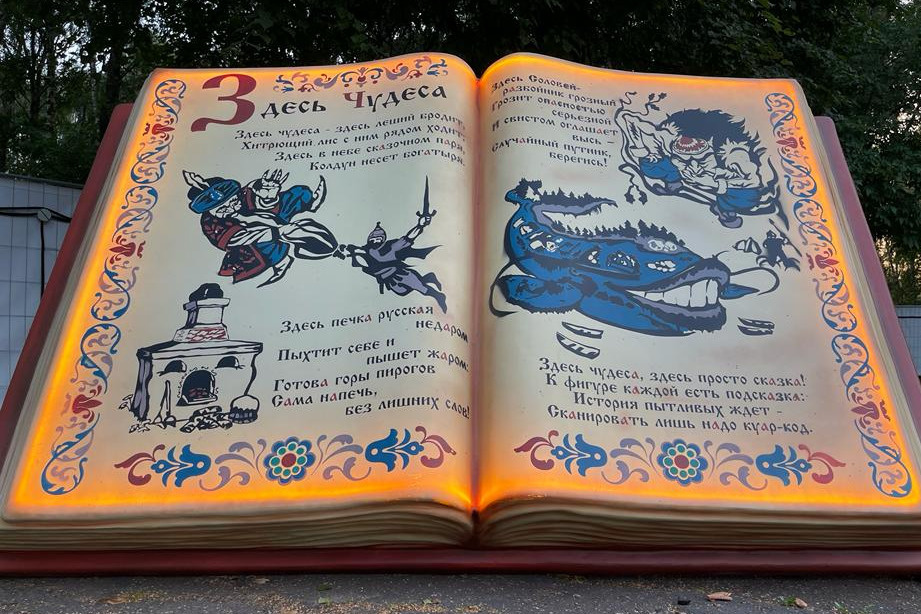 Здесь Чудеса
Здесь чудеса - здесь леший бродит,
Хитрющий лис с ним рядом ходит,
Здесь в небе сказочном паря,
Колдун несет богатыря.
Здесь печка русская
недаром
Пыхтит себе и
пышет жаром:
Готова горы пирогов
Сама напечь,
без лишних слов!
Здесь Соловей-
Разбойник грозный
Грозит опасностью
серьезной
И свистом оглашает
высь -
Случайный путник,
берегись!
Здесь чудеса, здесь просто сказка!
К фигуре каждой есть подсказка:
История пытливых ждет -
Сканировать лишь надо куар-код.